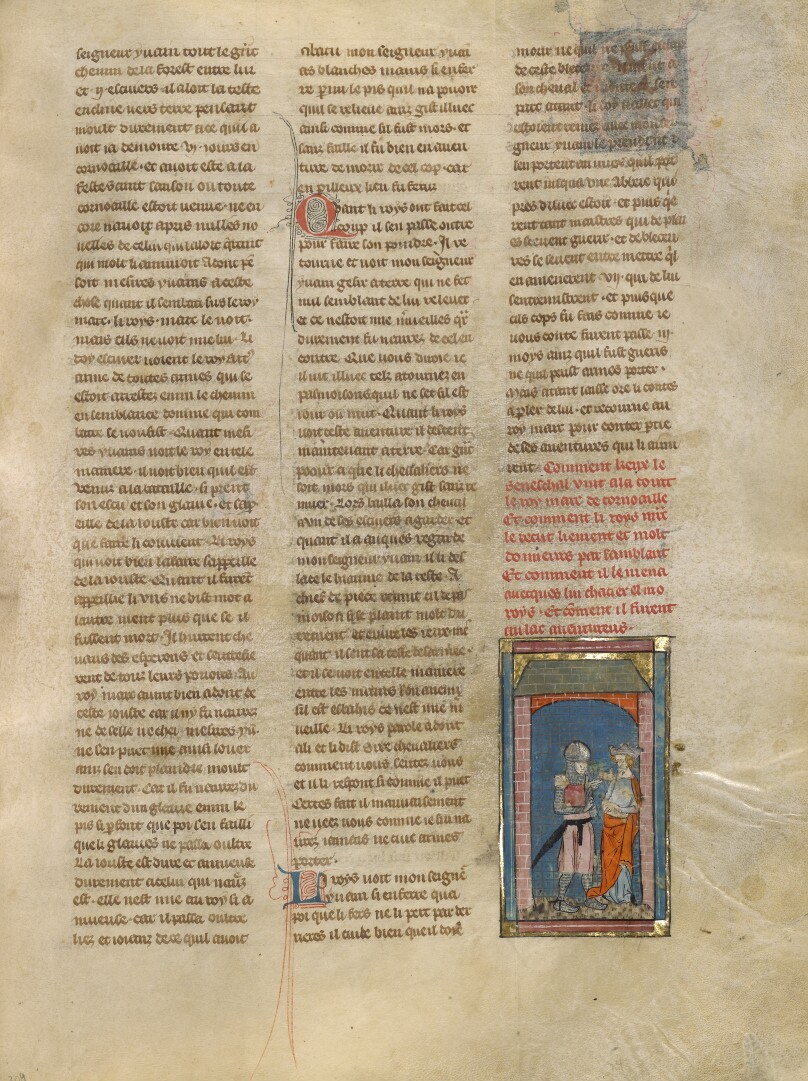 seigneur yuain tout le grāt
chemin de la forest entre lui
et ·ij· escuiers· il aloit la teste
encline uers terre pensant
moult durement a ce quil a
uoit ia demoure ·vj· iours en
cornoaille· et auoit este a la
feste saint sanson ou toute
cornoaille estoit uenue· ne en
core nauoit apris nulles no
uelles de celui qui aloit querāt
qui molt li anuioit A tont pē
soit mesires yuains a ceste
chose quant il sembati sus le roy
marc· li roys· marc le uoit·
mais cils ne uoit mie lui· Li
doy escuier uoient le roy
arme de toutes armes qui se
estoit arrestez enmi le chemin
en semblance domme qui com
batre se uousist· Quant mesi
res yuains uoit le roy en tele
maniere· il uoit bien quil est
uenuz a la bataille· si prent
son escu et son glaiue· et sap
eille de la iouste car bien uoit
que faire li couuient· Li roys
qui uoit bien lafaire sappeille
de la iouste· Quant il furēt
appeillie li uns ne dist mot a
lautre nient plus que se il
fussent mors· Il hurtent che
uaus des esperons et sentrefie
rent de touz leurs pouoirs· Au
roy marc auint bien adont de
ceste iouste car il ny fu naurez
ne de selle ne chei· mesires yu·
ne sen puet mie ainsi louer
ainz sen doit plaindre moult
durement· Car il fu naurez du
rement dun glaiue enmi le
pis si pfont que poi sen failli
que li glaiues ne passa oultre
La iouste est dure et anuieuse
durement a celui qui naurēz
est· elle nest mie au roy si a
nuieuse· car il passa oultre
liez et ioianz de ce quil auoit
abatu mon seigneur yuai
as blanches mains si enfer
re pmi le pis quil na pouoir
quil se relieue ainz gist illuec
ainsi comme sil fust mors· et
sanz faille il fu bien en auen
ture de morir de cel cop· car
en pilleux lieu fu ferus
Quant li roys ont fait cel
coup il sen passe outre
pour faire son poindre· Il re
tourne et uoit mon seigneur
yuain gesir a terre qui ne fet
nul semblant de lui releuer
et ce nestoit mie m̄ueilles q̄r
durement fu naurez de cel en
contre· Que uous diroie ie
il iut illuec telz atournez en
pasmoisons quil ne set sil est
iour ou nuit· Quant li roys
uoit ceste auenture il descent
maintenant a terre· Car grāt
paour a que li cheualiers ne
soit mors qui illuec gist sanz re
muer· Lors bailla son cheual
a un de ses escuiers a garder et
quant il a auques regarde
mon seigneur yuain il li des
lace le hiaume de la teste· A
chief de piece reuint cil de pas
moison si se plaint molt du
rement et euure les ieux· me
quant il sent sa teste desarmee·
et il se uoit en celle maniere
entre les mains son anemi
sil est esbahis ce nest mie m̄
ueille· Li roys parole adont
a li et li dist Sire cheualiers
comment uous sentez uous
et il li respont si comme il puet
Certes fait il mauuaisement
ne ueez uous comme ie sui na
urez iamais ne cuit armes
porter·
Li roys uoit mon seignē
yuain si enferre qua
poi que li fers ne li pert par der
rieres il cuide bien que il doie
mourir
de ceste bleceure
son cheual et
part atant· li escuier qui
estoient remez auec mon sei
gneur yuain le prendent
len portent au mieux quil pōt
rent iusqua une abbeie qui
pres diluec estoit· et puis q̄
rent tant maistres qui de plai
es seeuent guerir· et de bleceu
res se seuent entremettre q̄l
en amenerent ·vij· qui de lui
sentremistrent· et puis que
cils cops fu fais comme ie
uous conte furent passe ·iij·
moys ainz quil fust gueris
ne quil peust armes porter·
Mais atant laisse ore li contes
a pler de lui· et retourne au
roy marc pour conter ptie
de ses auentures qui li auin
rent· Comment keipe le
seneschal vint a la court
le roy marc de cornoaille
Et comment li roys mrc
le recut liement et molt
dolnūerus par samblant
Et comment il le mena
auecques lui chacier el mo
roys· Et cōment il furent
au lac auentureus·